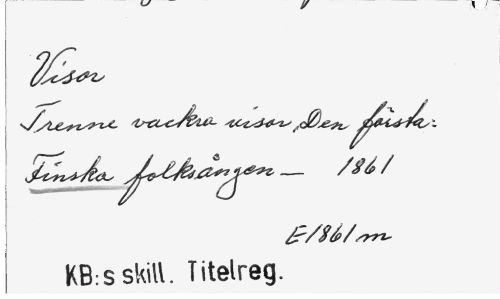 Visor
Trenne vackra visor, Den första:
Finska folksången — 1861
E1861m
KB:s skill. Titelreg.